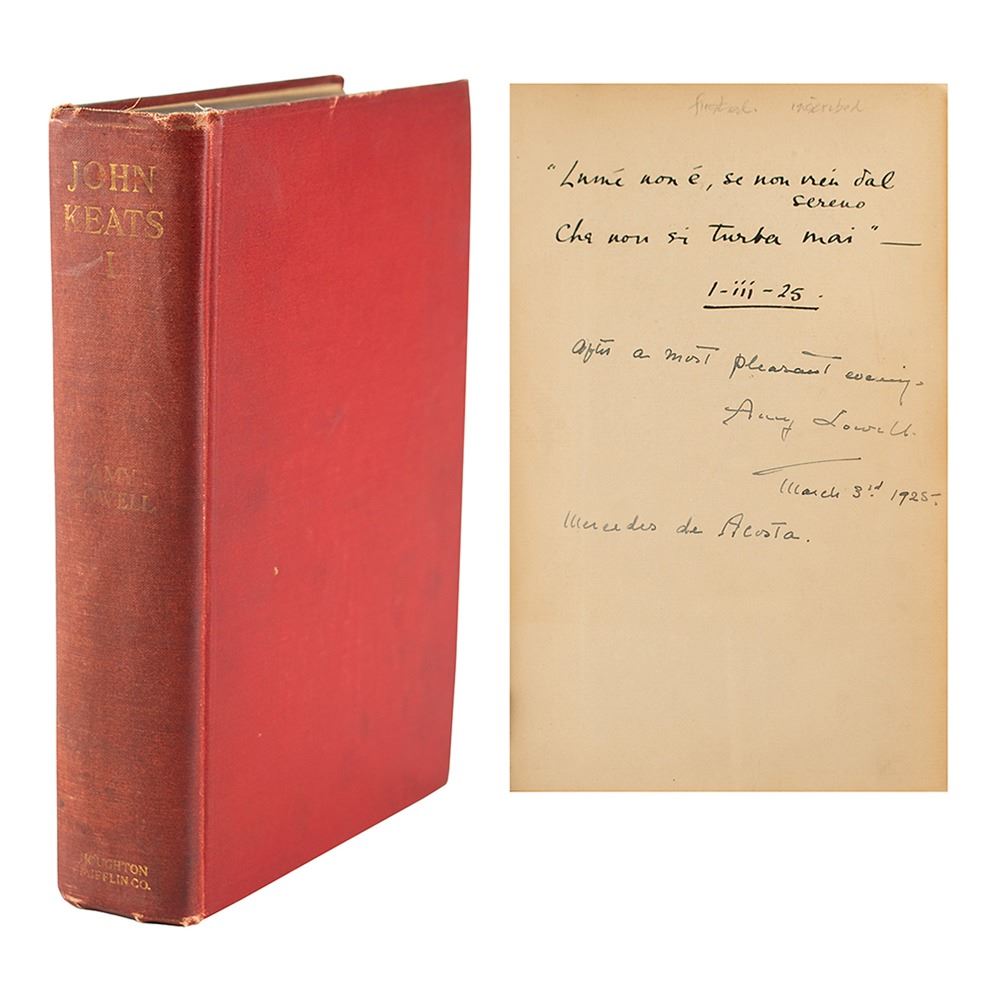 JOHN
KEATS
I
AMY
LOWELL
HOUGHTON
MIFFLIN CO.
inscribed
"Lumé non é, se non vien dal
sereno
Che non si turba mai" —
1-iii-25.
After a most pleasant evening.
Amy Lowell.
March 3rd 1925.
Mercedes de Acosta.